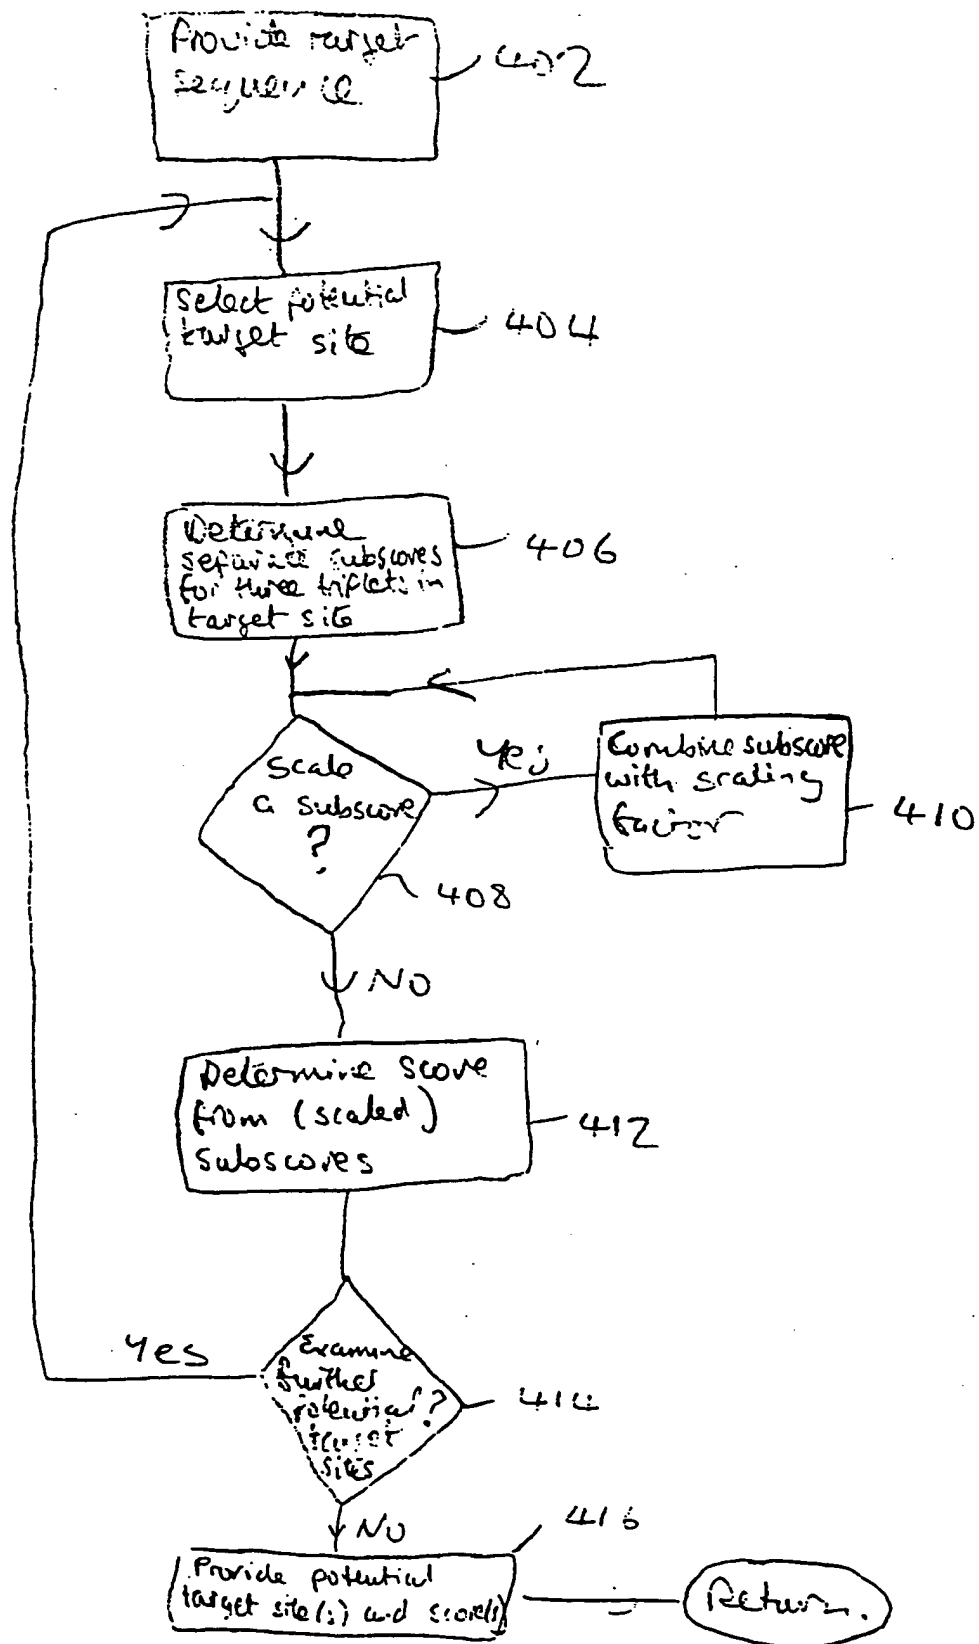 Provide target
sequence
402
Select potential
target site
404
Determine
separate subscores
for three triplets in
target site
406
Scale
a subscore
?
408
Yes
Combine subscore
with scaling
factor
410
NO
Determine score
from (scaled)
Subscores
412
Yes
Examine
further
potential
target
sites
?
414
NO
416
Provide potential
target site(s) and score(s)
Return.